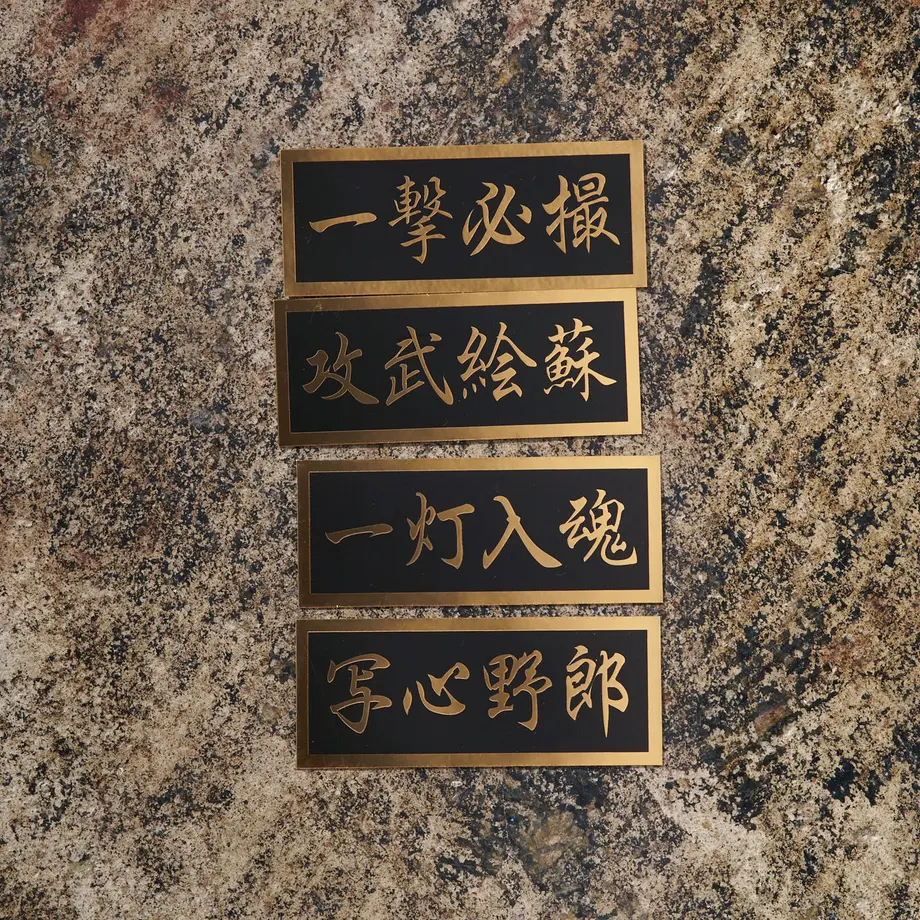 一撃必撮
攻武絵蘇
一灯入魂
写心野郎